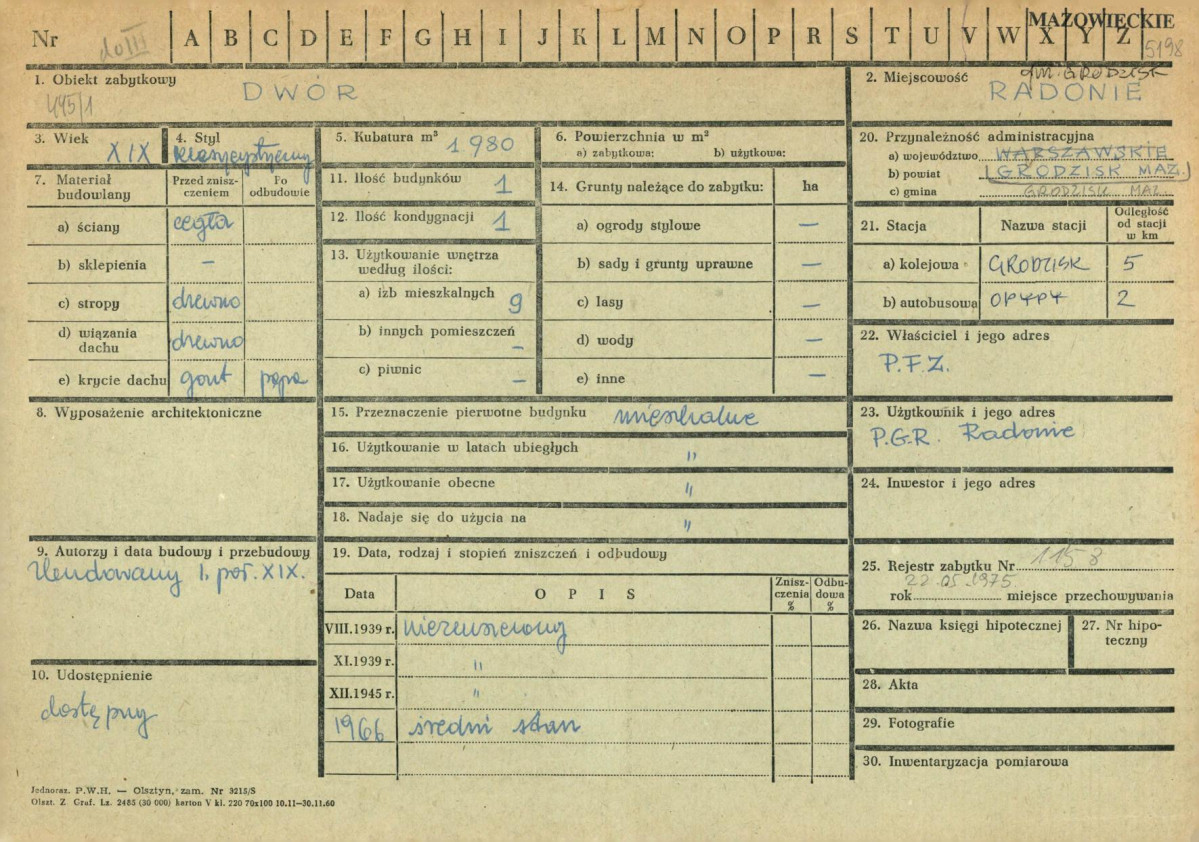 MAZOWIECKIE
Nr do III A B C D E F G H I J K L M N O P R S T U V W X Y Z
5198
1. Obiekt zabytkowy
445/1
DWÓR
2. Miejscowość gm. GRODZISK
RADONIE
3. Wiek
XIX
4. Styl
klasycystyczny
5. Kubatura m³ 1980
6. Powierzchnia w m²
a) zabytkowa: b) użytkowa:
20. Przynależność administracyjna
a) województwo WARSZAWSKIE
b) powiat (GRODZISK MAZ.)
c) gmina GRODZISK MAZ.
7. Materiał budowlany
Przed zniszczeniem
Po odbudowie
a) ściany cegła
b) sklepienia –
c) stropy drewno
d) wiązania dachu drewno
e) krycie dachu gont papa
11. Ilość budynków 1
12. Ilość kondygnacji 1
13. Użytkowanie wnętrza
według ilości:
a) izb mieszkalnych 9
b) innych pomieszczeń –
c) piwnic –
14. Grunty należące do zabytku: ha
a) ogrody stylowe –
b) sady i grunty uprawne –
c) lasy –
d) wody –
e) inne –
21. Stacja Nazwa stacji Odległość od stacji w km
a) kolejowa GRODZISK 5
b) autobusowa OPYPY 2
22. Właściciel i jego adres
P.F.Z.
8. Wyposażenie architektoniczne
15. Przeznaczenie pierwotne budynku mieszkalne
16. Użytkowanie w latach ubiegłych "
17. Użytkowanie obecne "
18. Nadaje się do użycia na "
23. Użytkownik i jego adres
P.G.R. Radonie
24. Inwestor i jego adres
9. Autorzy i data budowy i przebudowy
I. poł. XIX.
19. Data, rodzaj i stopień zniszczeń i odbudowy
Data OPIS Zniszczenia % Odbudowa %
VIII.1939 r. niezniszczony
XI.1939 r. "
XII.1945 r. "
1966 średni stan
25. Rejestr zabytku Nr 1158
22.05.1975.
rok miejsce przechowywania
26. Nazwa księgi hipotecznej
27. Nr hipoteczny
10. Udostępnienie
dostępny
28. Akta
29. Fotografie
30. Inwentaryzacja pomiarowa
Jednoraz. P.W.H. — Olsztyn, zam. Nr 3215/S
Olszt. Z. Graf. Lz. 2485 (30 000) karton V kl. 220 70x100 10.11—30.11.60